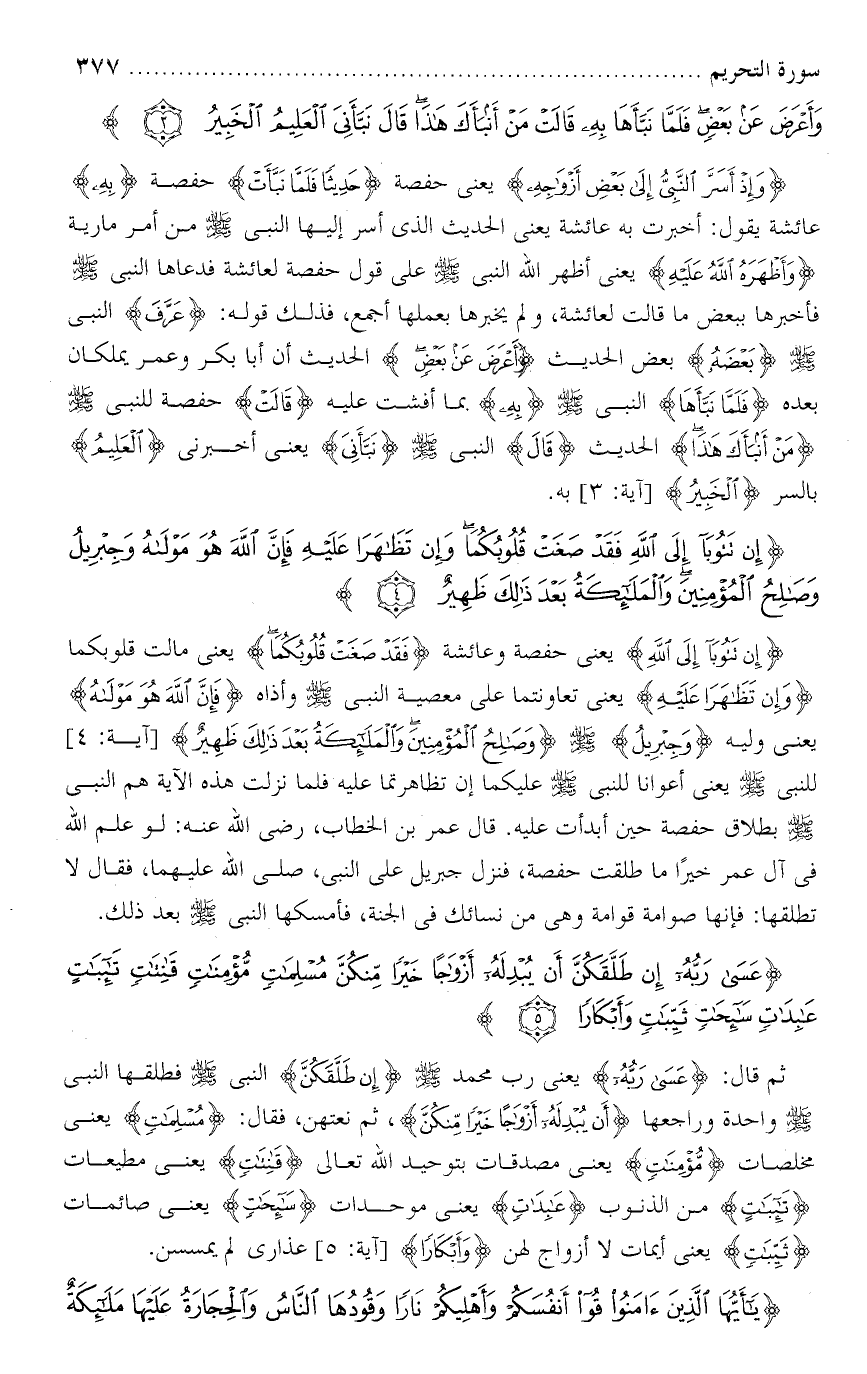 سورة التحريم ................................................................ ٣٧٧
وَأَعْرَضَ عَنۢ بَعْضٍۖ فَلَمَّا نَبَّأَهَا بِهِۦ قَالَتْ مَنْ أَنۢبَأَكَ هَٰذَاۖ قَالَ نَبَّأَنِىَ ٱلْعَلِيمُ ٱلْخَبِيرُ ٣ ﴾
﴿وَإِذْ أَسَرَّ ٱلنَّبِىُّ إِلَىٰ بَعْضِ أَزْوَٰجِهِۦ﴾ يعنى حفصة ﴿حَدِيثًا فَلَمَّا نَبَّأَتْ﴾ حفصة ﴿بِهِۦ﴾
عائشة يقول: أخبرت به عائشة يعنى الحديث الذى أسر إليها النبى ﷺ من أمر مارية
﴿وَأَظْهَرَهُ ٱللَّهُ عَلَيْهِ﴾ يعنى أظهر الله النبى ﷺ على قول حفصة لعائشة فدعاها النبى ﷺ
فأخبرها ببعض ما قالت لعائشة، ولم يخبرها بعملها أجمع، فذلك قوله: ﴿عَرَّفَ﴾ النبى
ﷺ ﴿بَعْضَهُۥ﴾ بعض الحديث ﴿وَأَعْرَضَ عَنۢ بَعْضٍۖ﴾ الحديث أن أبا بكر وعمر يملكان
بعده ﴿فَلَمَّا نَبَّأَهَا﴾ النبى ﷺ ﴿بِهِۦ﴾ بما أفشت عليه ﴿قَالَتْ﴾ حفصة للنبى ﷺ
﴿مَنْ أَنۢبَأَكَ هَٰذَاۖ﴾ الحديث ﴿قَالَ﴾ النبى ﷺ ﴿نَبَّأَنِىَ﴾ يعنى أخبرنى ﴿ٱلْعَلِيمُ﴾
بالسر ﴿ٱلْخَبِيرُ﴾ [آية: ٣] به.
﴿إِن تَتُوبَآ إِلَى ٱللَّهِ فَقَدْ صَغَتْ قُلُوبُكُمَاۖ وَإِن تَظَٰهَرَا عَلَيْهِ فَإِنَّ ٱللَّهَ هُوَ مَوْلَىٰهُ وَجِبْرِيلُ
وَصَٰلِحُ ٱلْمُؤْمِنِينَۖ وَٱلْمَلَٰٓئِكَةُ بَعْدَ ذَٰلِكَ ظَهِيرٌ ٤ ﴾
﴿إِن تَتُوبَآ إِلَى ٱللَّهِ﴾ يعنى حفصة وعائشة ﴿فَقَدْ صَغَتْ قُلُوبُكُمَاۖ﴾ يعنى مالت قلوبكما
﴿وَإِن تَظَٰهَرَا عَلَيْهِ﴾ يعنى تعاونتما على معصية النبى ﷺ وأذاه ﴿فَإِنَّ ٱللَّهَ هُوَ مَوْلَىٰهُ﴾
يعنى وليه ﴿وَجِبْرِيلُ﴾ ﷺ ﴿وَصَٰلِحُ ٱلْمُؤْمِنِينَۖ وَٱلْمَلَٰٓئِكَةُ بَعْدَ ذَٰلِكَ ظَهِيرٌ﴾ [آية: ٤]
للنبى ﷺ يعنى أعوانا للنبى ﷺ عليكما إن تظاهرتما عليه فلما نزلت هذه الآية هم النبى
ﷺ بطلاق حفصة حين أبدأت عليه. قال عمر بن الخطاب، رضى الله عنه: لو علم الله
فى آل عمر خيرًا ما طلقت حفصة، فنزل جبريل على النبى، صلى الله عليهما، فقال لا
تطلقها: فإنها صوامة قوامة وهى من نسائك فى الجنة، فأمسكها النبى ﷺ بعد ذلك.
﴿عَسَىٰ رَبُّهُۥٓ إِن طَلَّقَكُنَّ أَن يُبْدِلَهُۥٓ أَزْوَٰجًا خَيْرًا مِّنكُنَّ مُسْلِمَٰتٍ مُّؤْمِنَٰتٍ قَٰنِتَٰتٍ تَٰٓئِبَٰتٍ
عَٰبِدَٰتٍ سَٰٓئِحَٰتٍ ثَيِّبَٰتٍ وَأَبْكَارًا ٥ ﴾
ثم قال: ﴿عَسَىٰ رَبُّهُۥٓ﴾ يعنى رب محمد ﷺ ﴿إِن طَلَّقَكُنَّ﴾ النبى ﷺ فطلقها النبى
ﷺ واحدة وراجعها ﴿أَن يُبْدِلَهُۥٓ أَزْوَٰجًا خَيْرًا مِّنكُنَّ﴾، ثم نعتهن، فقال: ﴿مُسْلِمَٰتٍ﴾ يعنى
مخلصات ﴿مُّؤْمِنَٰتٍ﴾ يعنى مصدقات بتوحيد الله تعالى ﴿قَٰنِتَٰتٍ﴾ يعنى مطيعات
﴿تَٰٓئِبَٰتٍ﴾ من الذنوب ﴿عَٰبِدَٰتٍ﴾ يعنى موحدات ﴿سَٰٓئِحَٰتٍ﴾ يعنى صائمات
﴿ثَيِّبَٰتٍ﴾ يعنى أيمات لا أزواج لهن ﴿وَأَبْكَارًا﴾ [آية: ٥] عذارى لم يمسسن.
﴿يَٰٓأَيُّهَا ٱلَّذِينَ ءَامَنُوا۟ قُوٓا۟ أَنفُسَكُمْ وَأَهْلِيكُمْ نَارًا وَقُودُهَا ٱلنَّاسُ وَٱلْحِجَارَةُ عَلَيْهَا مَلَٰٓئِكَةٌ